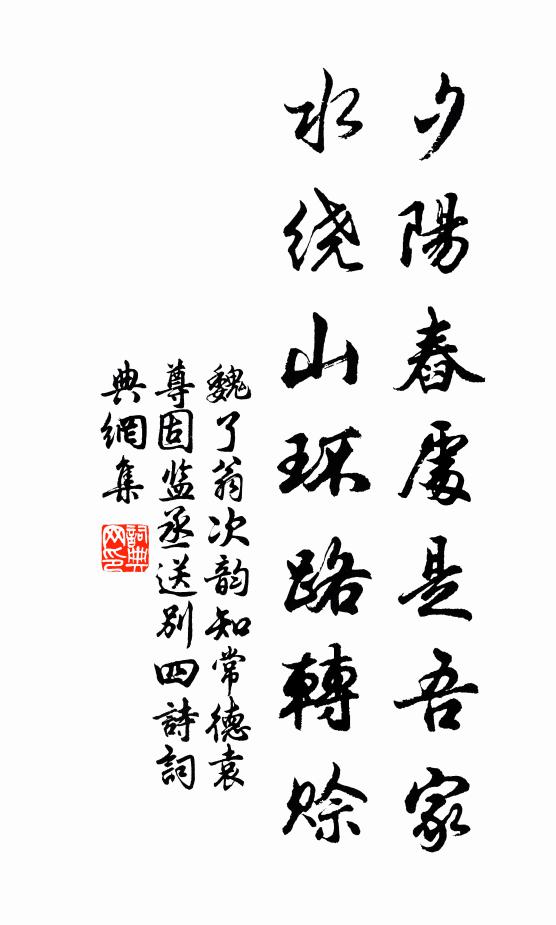 夕陽舂處是吾家
水绕山环路轉賒
魏了翁次韵知常德袁
尊固监丞送别四詩詞
典網集
詞典
网印